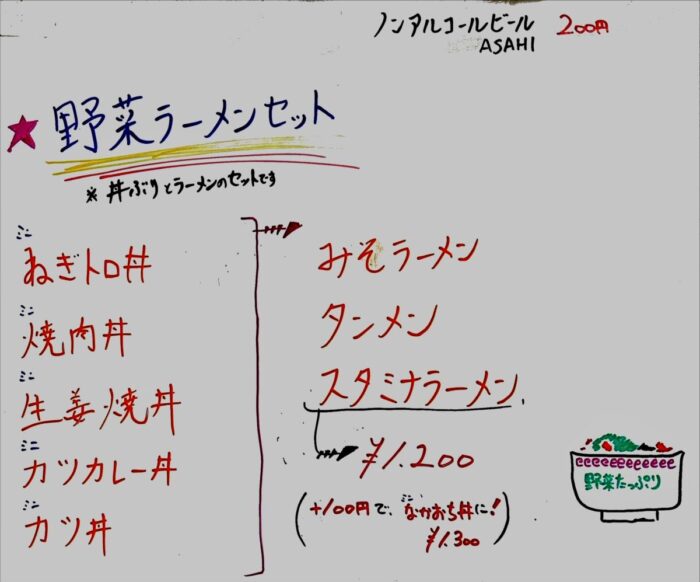 ノンアルコールビール 200円
ASAHI
★野菜ラーメンセット
※ 丼ぶりとラーメンのセットです
ミニ
ねぎトロ丼
ミニ
焼肉丼
ミニ
生姜焼丼
ミニ
カツカレー丼
ミニ
カツ丼
みそラーメン
タンメン
スタミナラーメン
¥1.200
ミニ
(+100円で、なかおち丼に!
¥1.300)
野菜たっぷり